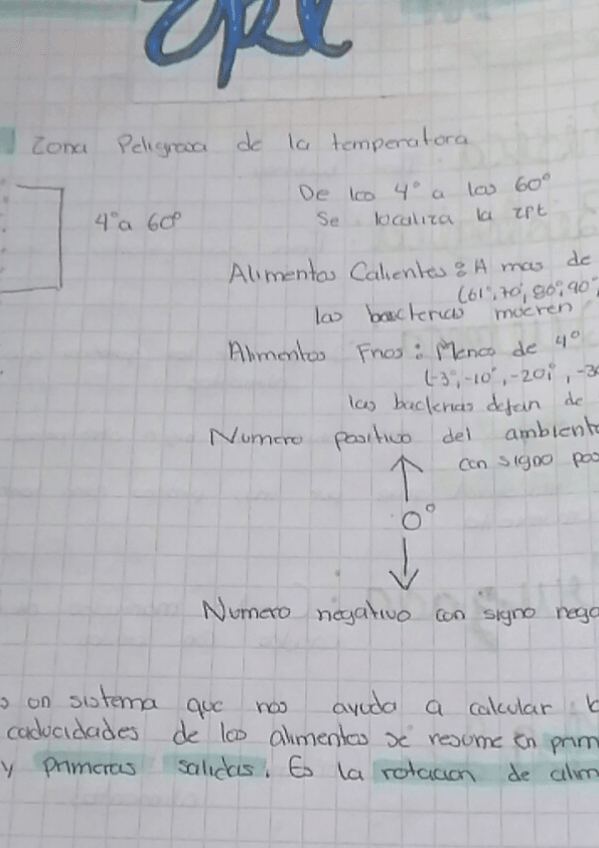 Zona Peligrosa de la temperatura
De los 4° a las 60°
4° a 60°
Se localiza la zpt
Alimentos Calientes: A mas de
(61°, 70°, 80°, 90°,
las bacterias mueren
Alimentos Frios: Menos de 4°
(-3°, -10°, -20°, -30
las bacterias dejan de
Numero positivo del ambient
con signo pos
0°
Numero negativo con signo nega
un sistema que nos ayuda a calcular
caducidades de los alimentos se resume en prim
y primeras salidas. Es la rotacion de alim